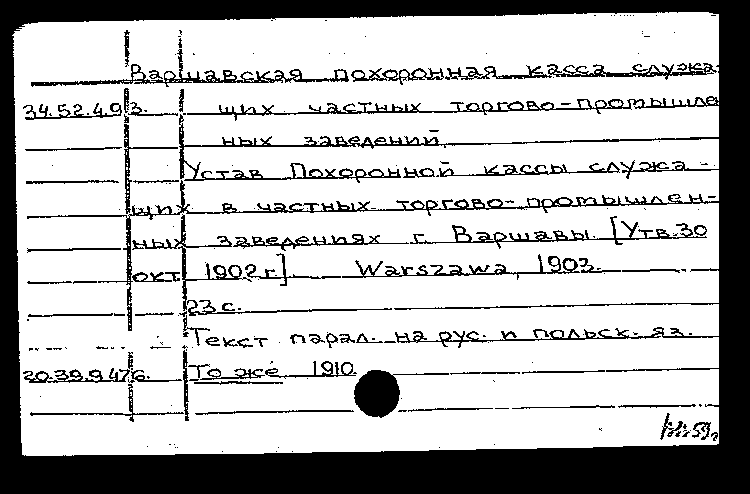 Варшавская похоронная касса служа-
34.52.4.93. щих частных торгово-промышле
ных заведений.
Устав Похоронной кассы служа-
щих в частных торгово-промышлен-
ных заведениях г. Варшавы. [Утв. 30
окт. 1902 г.]. Warszawa, 1903.
23 с.
Текст парал. на рус. и польск. яз.
20.39.9.476. То же 1910.